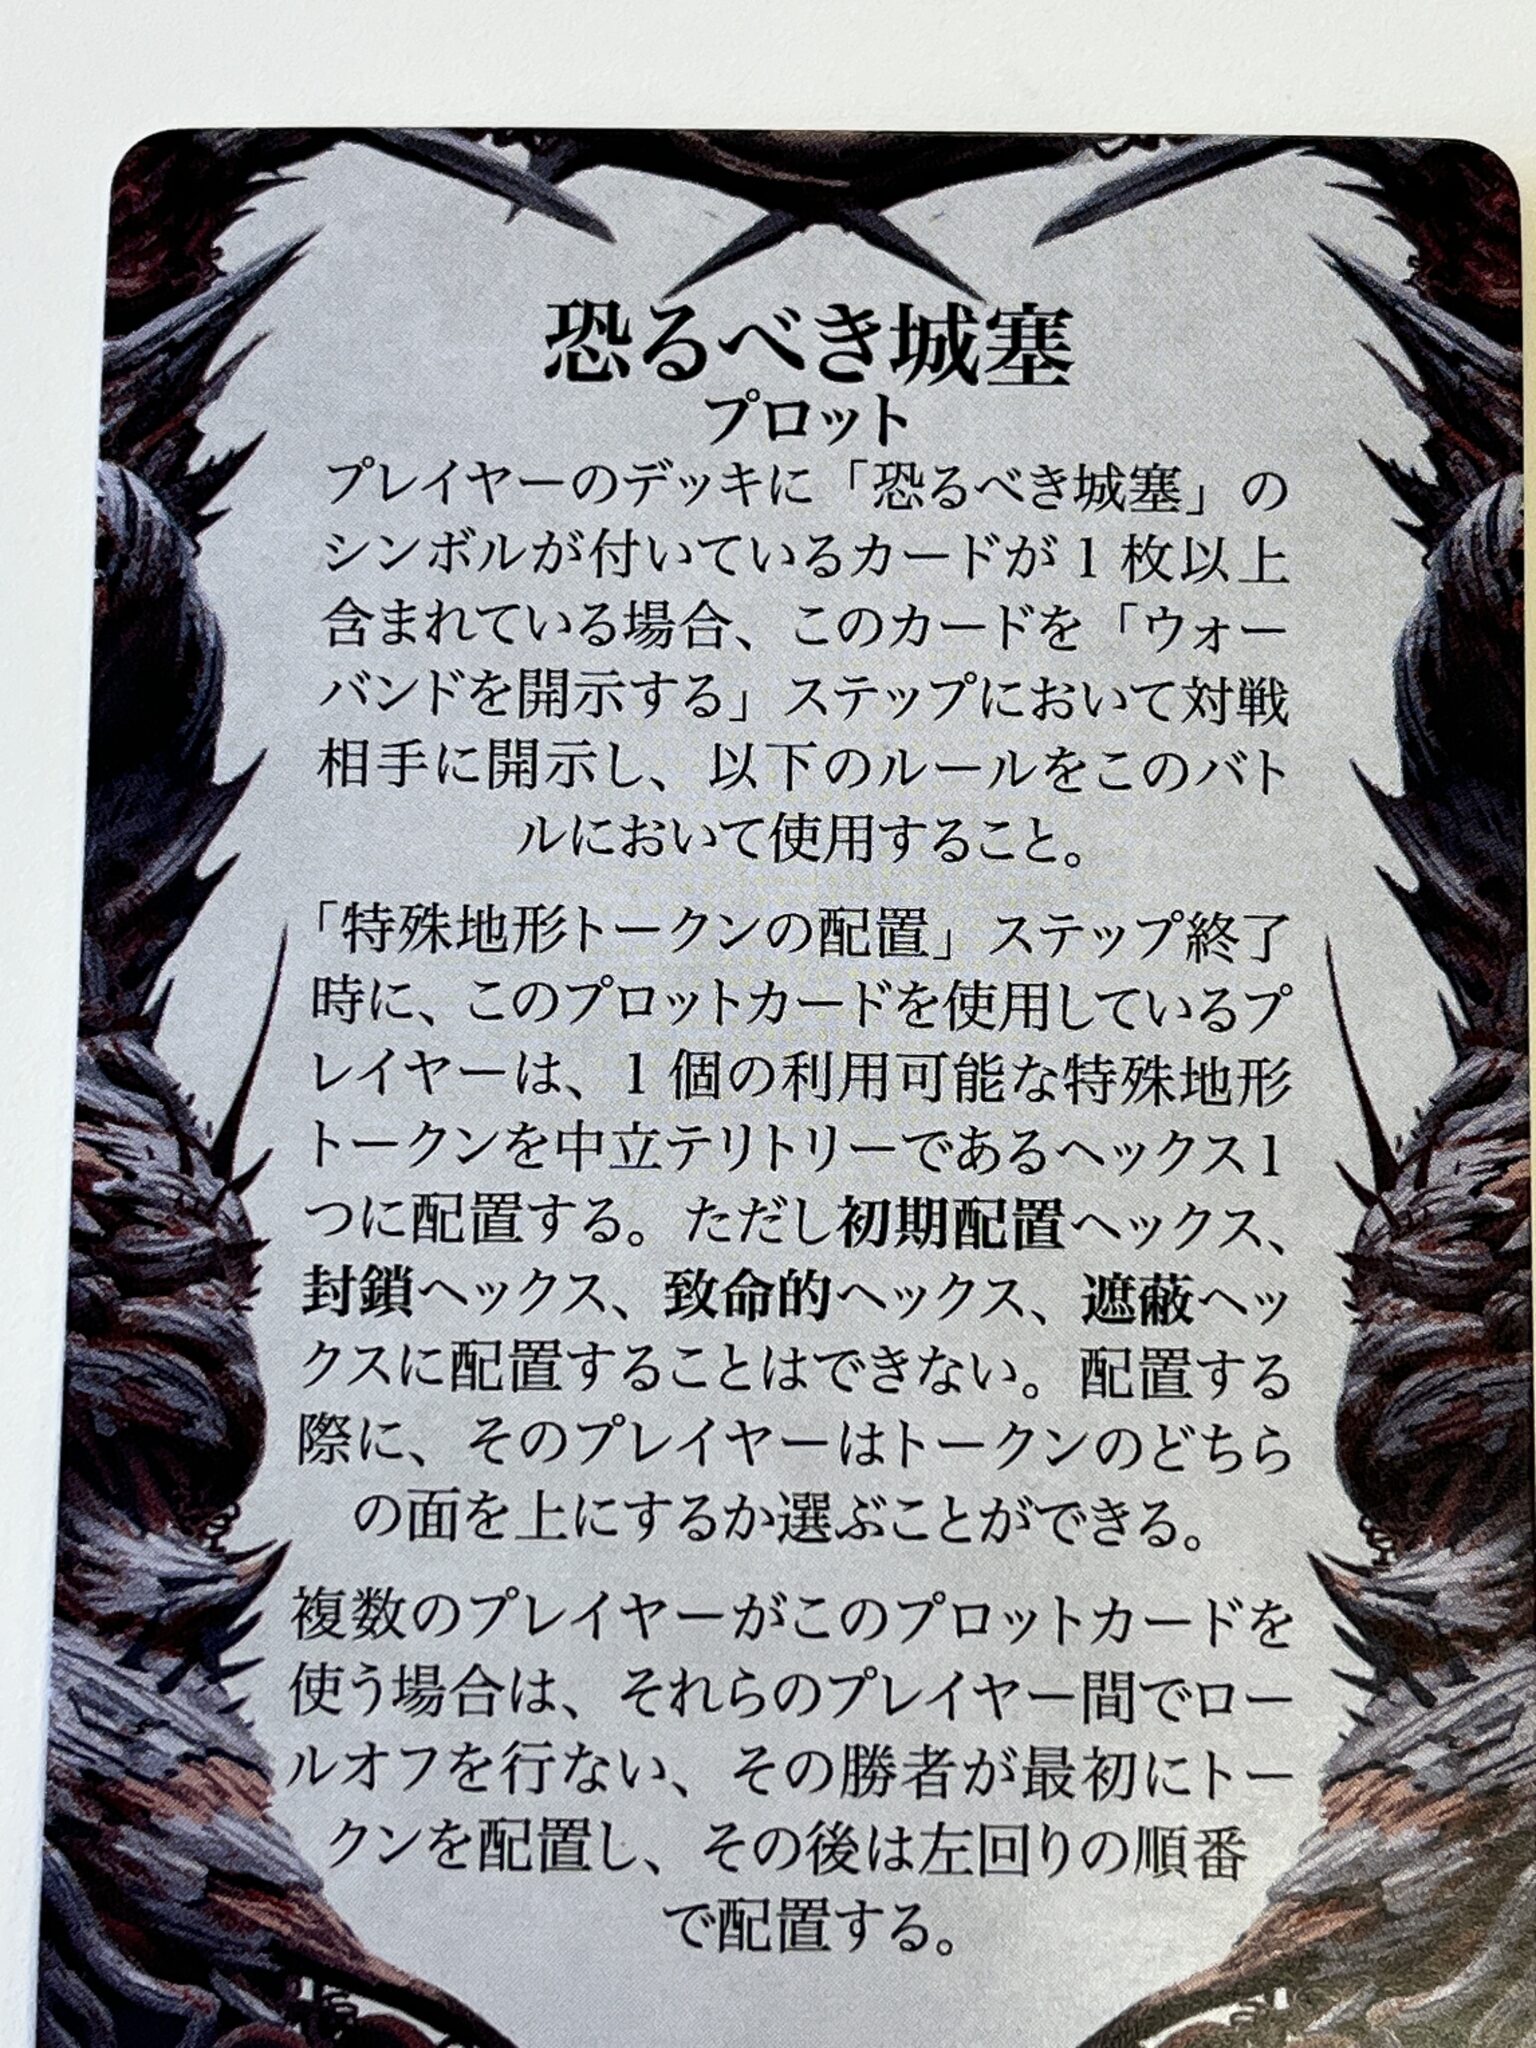 恐るべき城塞
プロット
プレイヤーのデッキに「恐るべき城塞」の
シンボルが付いているカードが1枚以上
含まれている場合、このカードを「ウォー
バンドを開示する」ステップにおいて対戦
相手に開示し、以下のルールをこのバト
ルにおいて使用すること。
「特殊地形トークンの配置」ステップ終了
時に、このプロットカードを使用しているプ
レイヤーは、1個の利用可能な特殊地形
トークンを中立テリトリーであるヘックス1
つに配置する。ただし初期配置ヘックス、
封鎖ヘックス、致命的ヘックス、遮蔽ヘッ
クスに配置することはできない。配置する
際に、そのプレイヤーはトークンのどちら
の面を上にするか選ぶことができる。
複数のプレイヤーがこのプロットカードを
使う場合は、それらのプレイヤー間でロー
ルオフを行ない、その勝者が最初にトー
クンを配置し、その後は左回りの順番
で配置する。